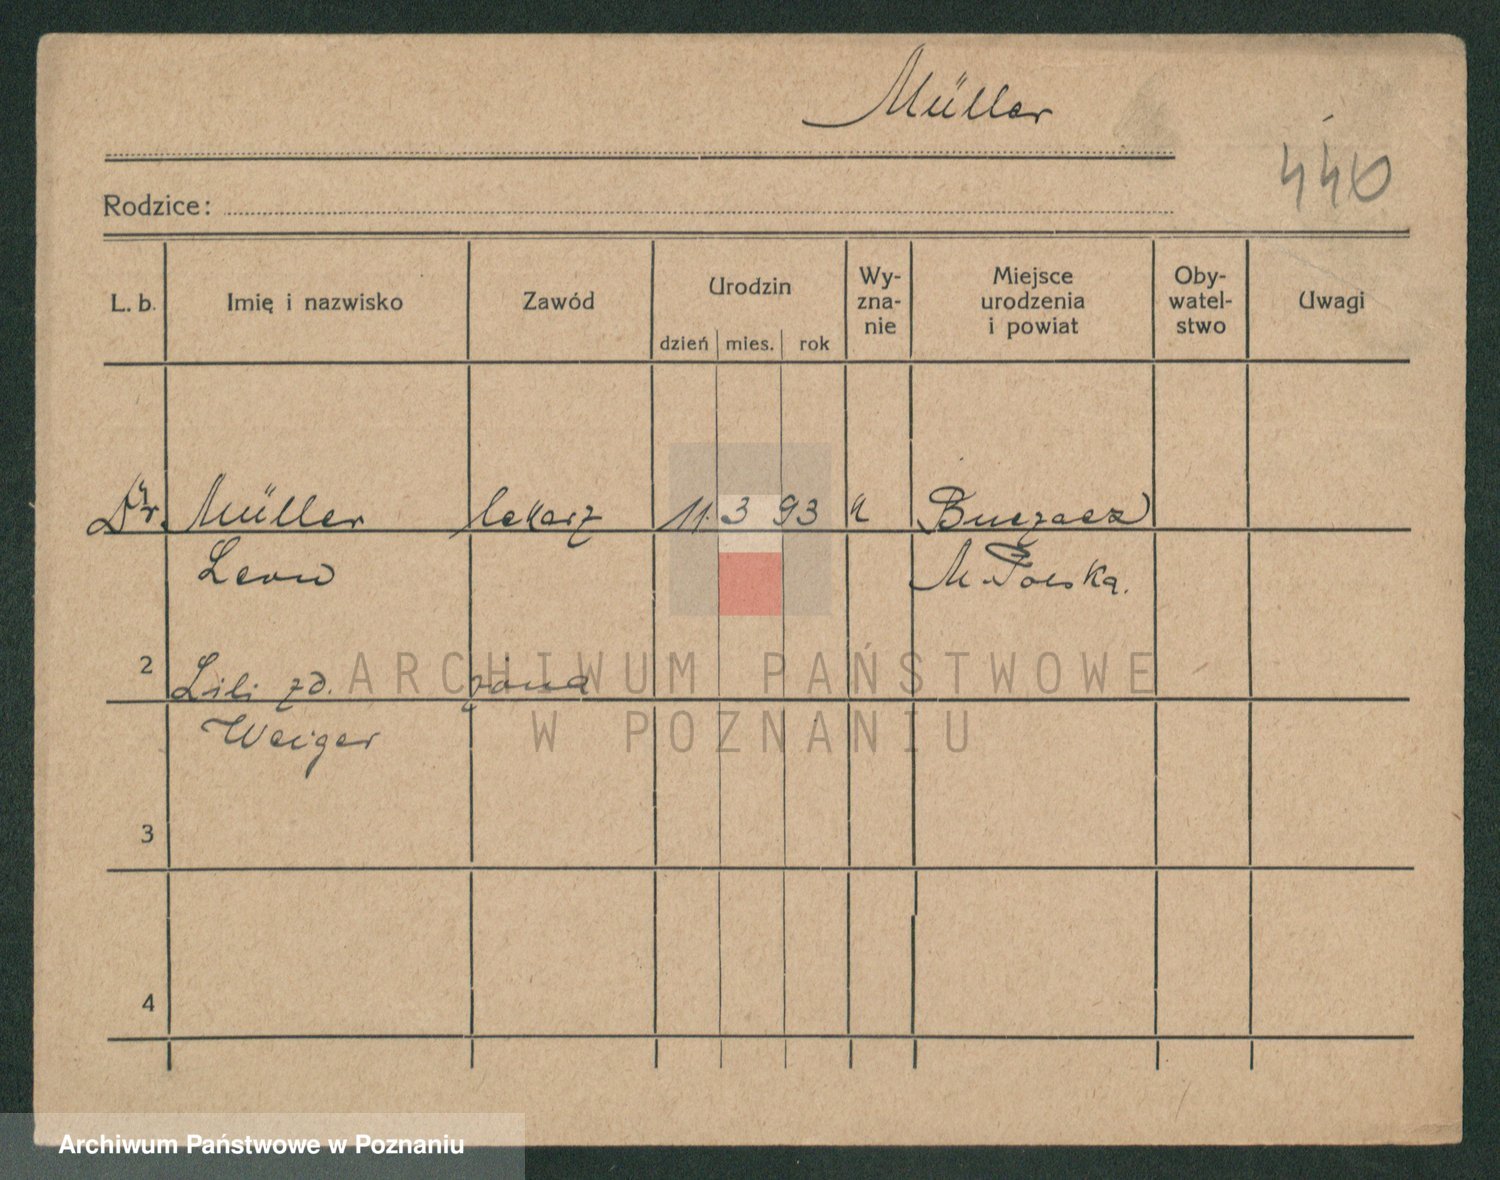 Müller
440
Rodzice:
L. b. Imię i nazwisko Zawód Urodzin dzień mies. rok Wy-zna-nie Miejsce urodzenia i powiat Oby-watel-stwo Uwagi
Dr. Müller lekarz 11. 3 93 Buczacz
Leon M. Polska.
2 Lili zd. żona
Weiger
3
4
ARCHIWUM PAŃSTWOWE
W POZNANIU
Archiwum Państwowe w Poznaniu